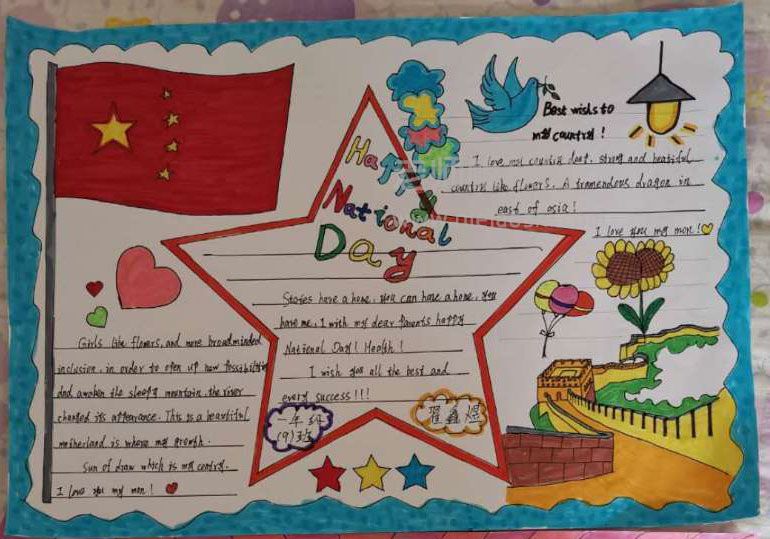 Happy
National
Day
Stories have a home, you can have a home, you
have me, I wish my dear Parents happy
National Day! Health!
I wish you all the best and
every success!!!
一年级
(9)班
Best wishs to
my country!
I love my country deat, strong and beatiful
country like flowers. A tremendous dragon in
east of asia!
I love you my mon!
Girls like flowers, and more broadminded
inclusion, in order to open up new Possibilities
and awaken the sleepy mountain, the river
changed its appearance. This is a beautiful
motherland is where my growth.
Sun of draw which is my contry.
I love you my mon!